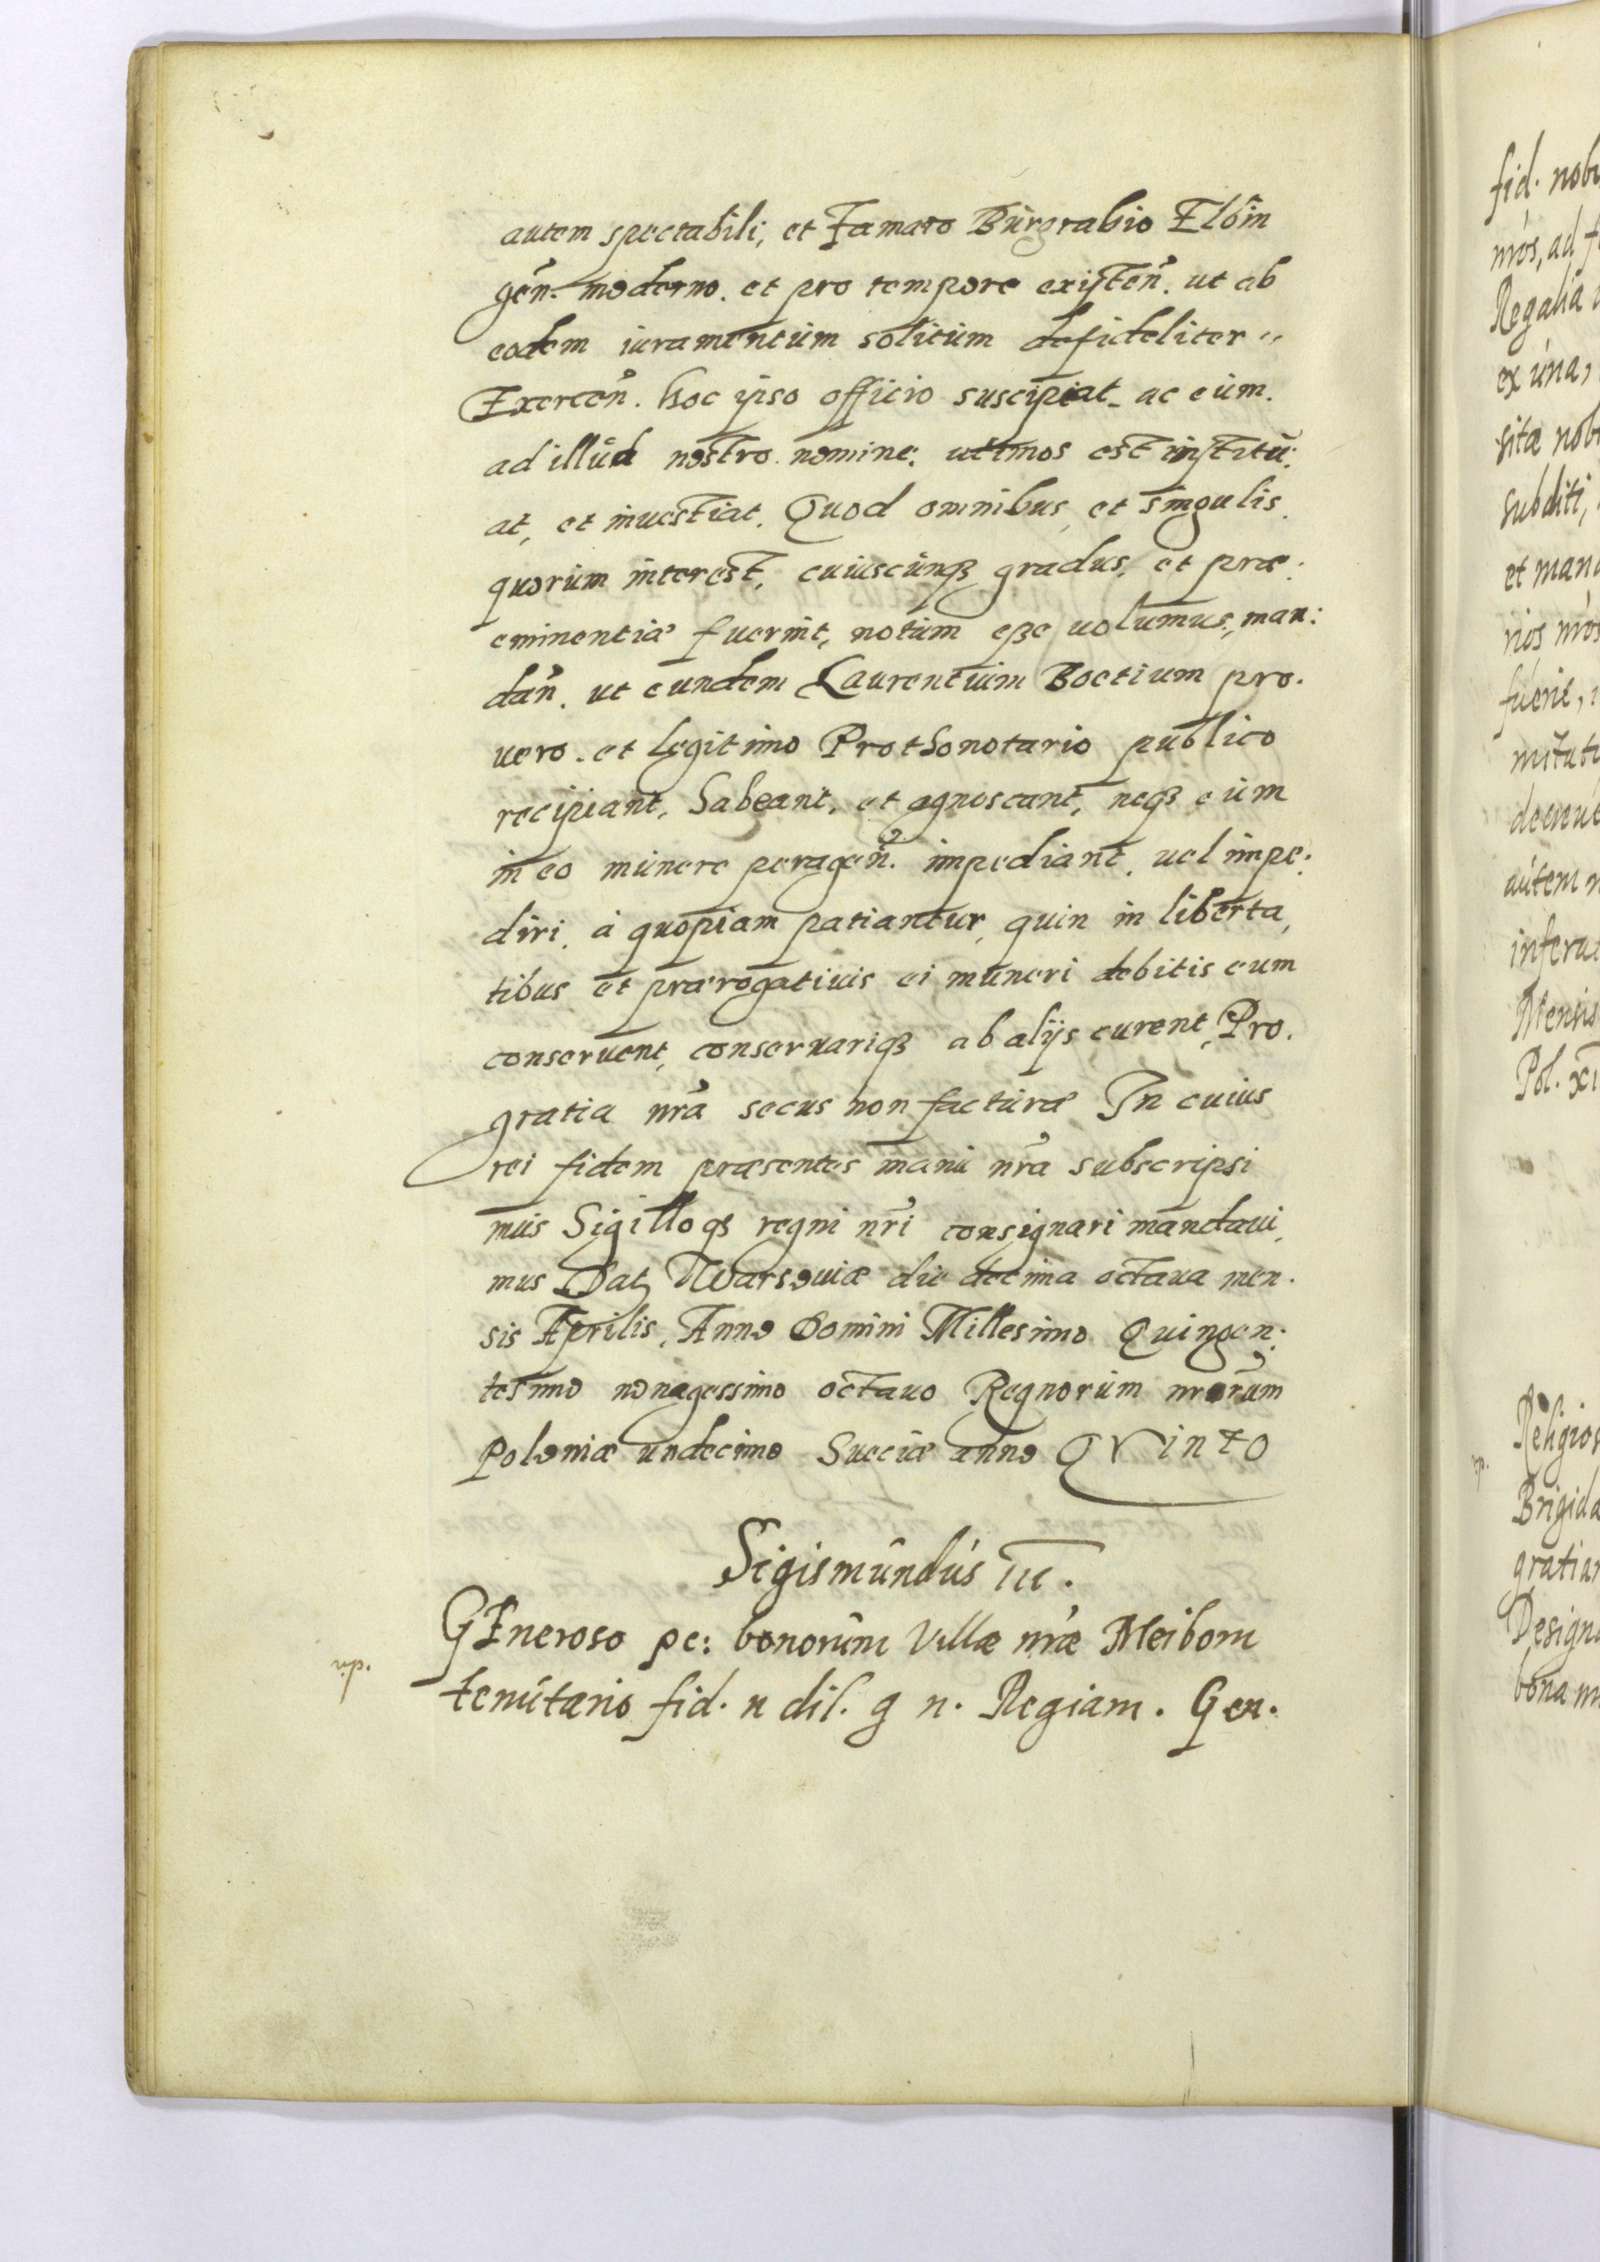 autem spectabili, et Famato Burgrabio Elbin
gen̄. moderno. et pro tempore existen̄. ut ab
eodem iuramentum solitum defideliter "
Exercen̄. hoc ipso officio suscipiat_ ac eum.
ad illud nostro nomine. utimos est institu:
at, et inuestiat. Quod omnibus, et singulis.
quorum interest, cuiuscunqꝫ gradus, et præ:
eminentiæ fuerint, notum eße uolumus, man:
dan̄. ut eundem Laurentium Boetium pro.
uero. et legitimo Prothonotario publico
recipiant, habeant, et agnoscant, neqꝫ eum
in eo munere peragen̄. impediant. uel impe:
diri. à quopiam patiantur, quin in liberta,
tibus et prærogatiuis ei muneri debitis eum
conseruent, conseruariqꝫ ab alijs curent, Pro.
gratia nr̄a secus non facturæ In cuius
rei fidem præsentes manu nr̄a subscripsi
mus Sigilloqꝫ regni nr̄i consignari mandaui,
mus Datꝫ Warsouiæ die decima octaua men.
sis Aprilis, Anno Domini Millesimo Quingen:
tesimo nonagessimo octauo Regnorum nrorum
Poloniæ undecimo Sueciæ anno QVinto
Sigismundus III.
GEneroso pe: bonorum Villæ nr̄æ Meibom
tenutario fid. n dil. g n. Regiam. Gen.
fid. nob
nr̄os, ad
Regalia
ex una,
sitæ nob
subditi,
et man
rios nr̄os
fuerit,
autem
Mensis
Pol. xi
Religios
Brigida
gratia
Design
bona